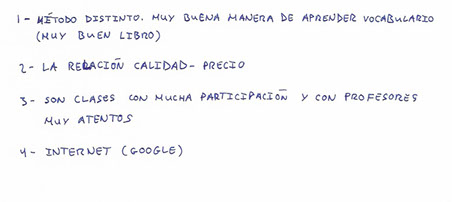 1- MÉTODO DISTINTO. MUY BUENA MANERA DE APRENDER VOCABULARIO
(MUY BUEN LIBRO)
2- LA RELACIÓN CALIDAD-PRECIO
3- SON CLASES CON MUCHA PARTICIPACIÓN Y CON PROFESORES
MUY ATENTOS
4- INTERNET (GOOGLE)